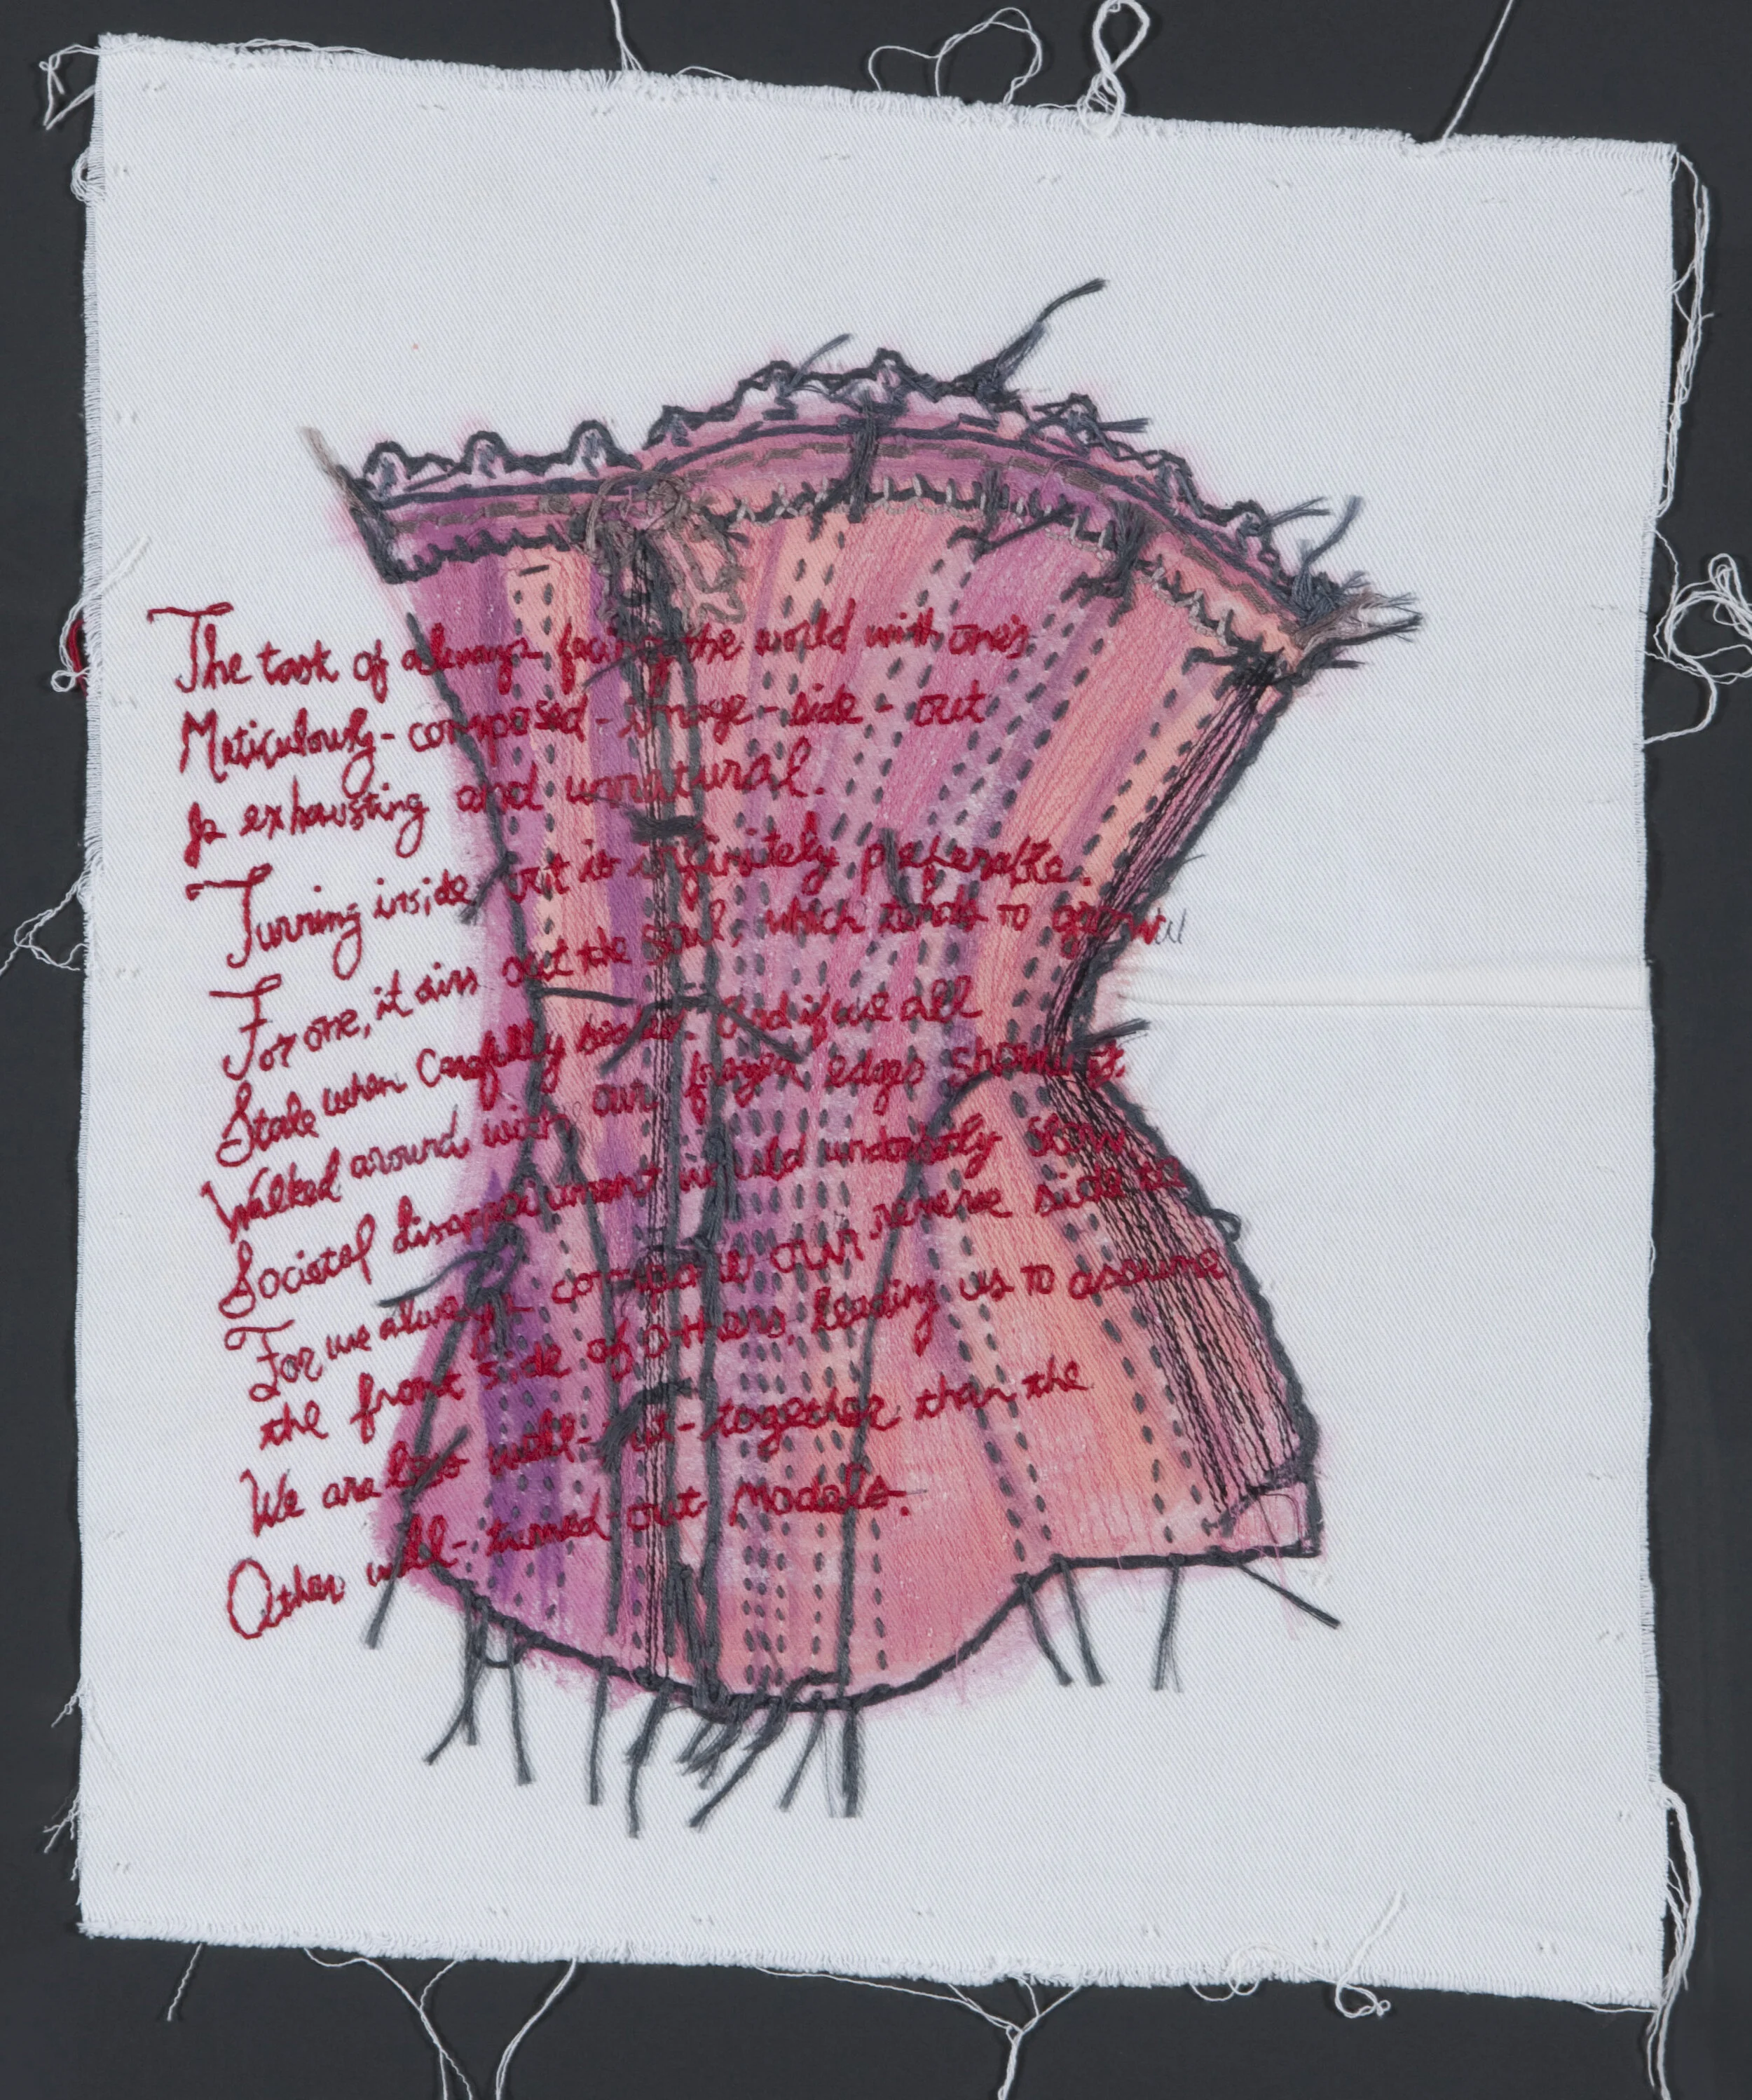 The task of always facing the world with one's
Meticulously-composed-image-side-out
Is exhausting and unnatural.
Turning inside out is infinitely preferable.
For one, it airs out the soul, which tends to grow
Stale when carefully And if we all
Walked around with our frayed edges showing,
Societal disappointment would undoubtedly slow
For we always compare our reverse side to
the front side of others, leading us to assume
We are less well-put-together than the
Other well-turned-out models.